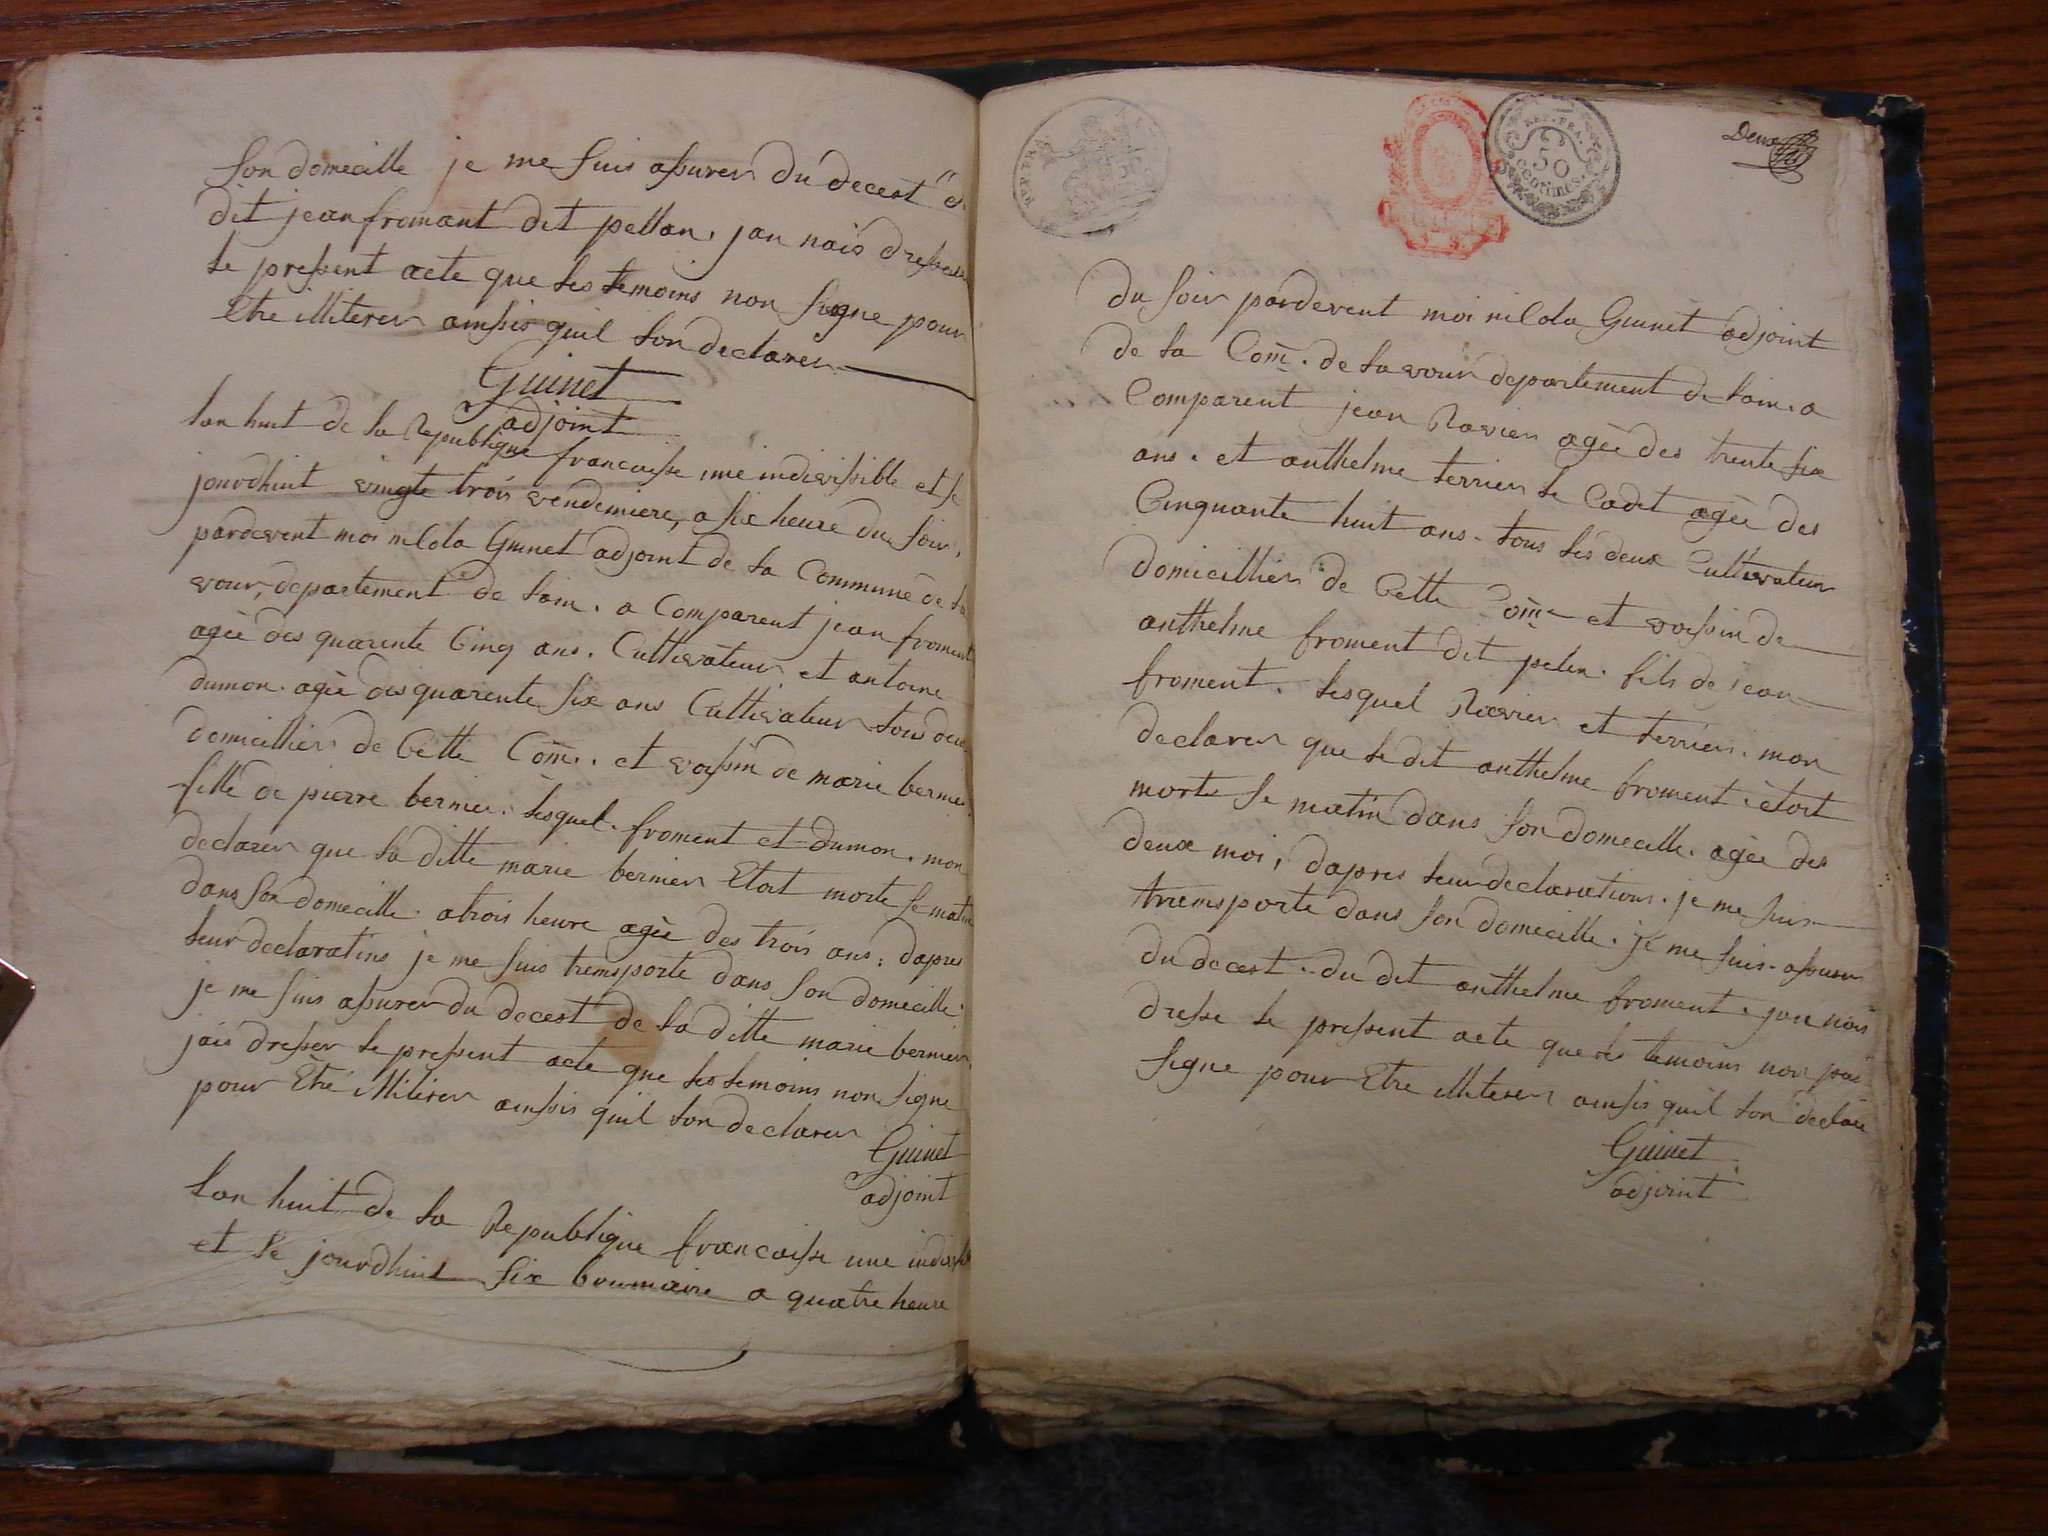 son domecille je me suis assurer du decest "d
dit jean fromant dit pellan. jan nais dresser
le pressent acte que les temoins non signe pour
Etre illiterer ainssis quil lon declarer
Guinet
adjoint
lan huit de la Republique francaisse une indivissible et le
jourdhuit vingte trois vendemiere, a six heure du soir,
pardevent moi nilola Guinet adjoint de la Commune de la
vour, departement de lain. a Comparent jean froment
agée des quarente Cinq ans. Cultivateur et antoine
dumon. agée des quarente six ans Cultivateur tous deux
domicillier de Cette Com. et voissin de marie bernier
fille de pierre bernier. lesquel. froment et dumon. mon
declarer que la ditte marie bernier Etort morte se matin
dans son domecille. a trois heure agée des trois ans; dapres
leur declaratins je me suis tremsporte dans son domecille.
je me suis assurer du decest de la ditte marie bernier.
jais dresser le pressent acte que les temoins non signe
pour Etre illiterer ainssis quil lon declarer
Guinet
adjoint
lan huit de la Republique francaisse une
et le jourdhuit six brumaire a quatre heure
REP. FRA.
50
centimes.
Deux
du soir pardevent moi nilola Guinet adjoint
de la Com. de lavour departement de lain. a
Comparent jean Ravier agée des trente six
ans. et anthelme terrier le Cadet agée des
Cinquante huit ans. tous les deux Cultivateur
domicillier de Cette Com. et voissin de
anthelme froment dit pelen. fils de jean
froment. lesquel Ravier et terrier. mon
declarer que le dit anthelme froment. étort
morte se matin dans son domecille. agée des
deux moi, dapres leur declarations. je me suis
tremsporte dans son domecille. je me suis. assurer
du decest. du dit anthelme froment. jan nais
dresse le pressent acte que les temoins non pas
signe pour Etre illiterer ainssis quil lon declare
Guinet
adjoint